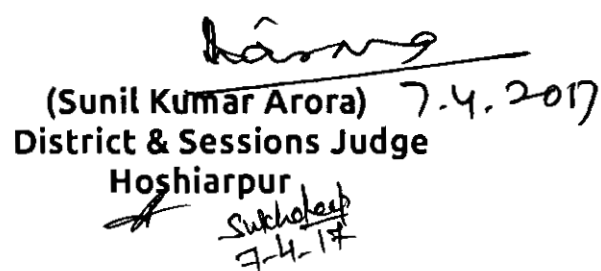 (Sunil Kumar Arora) 7.4.2017
District & Sessions Judge
Hoshiarpur
Sukhdeep
7-4-17